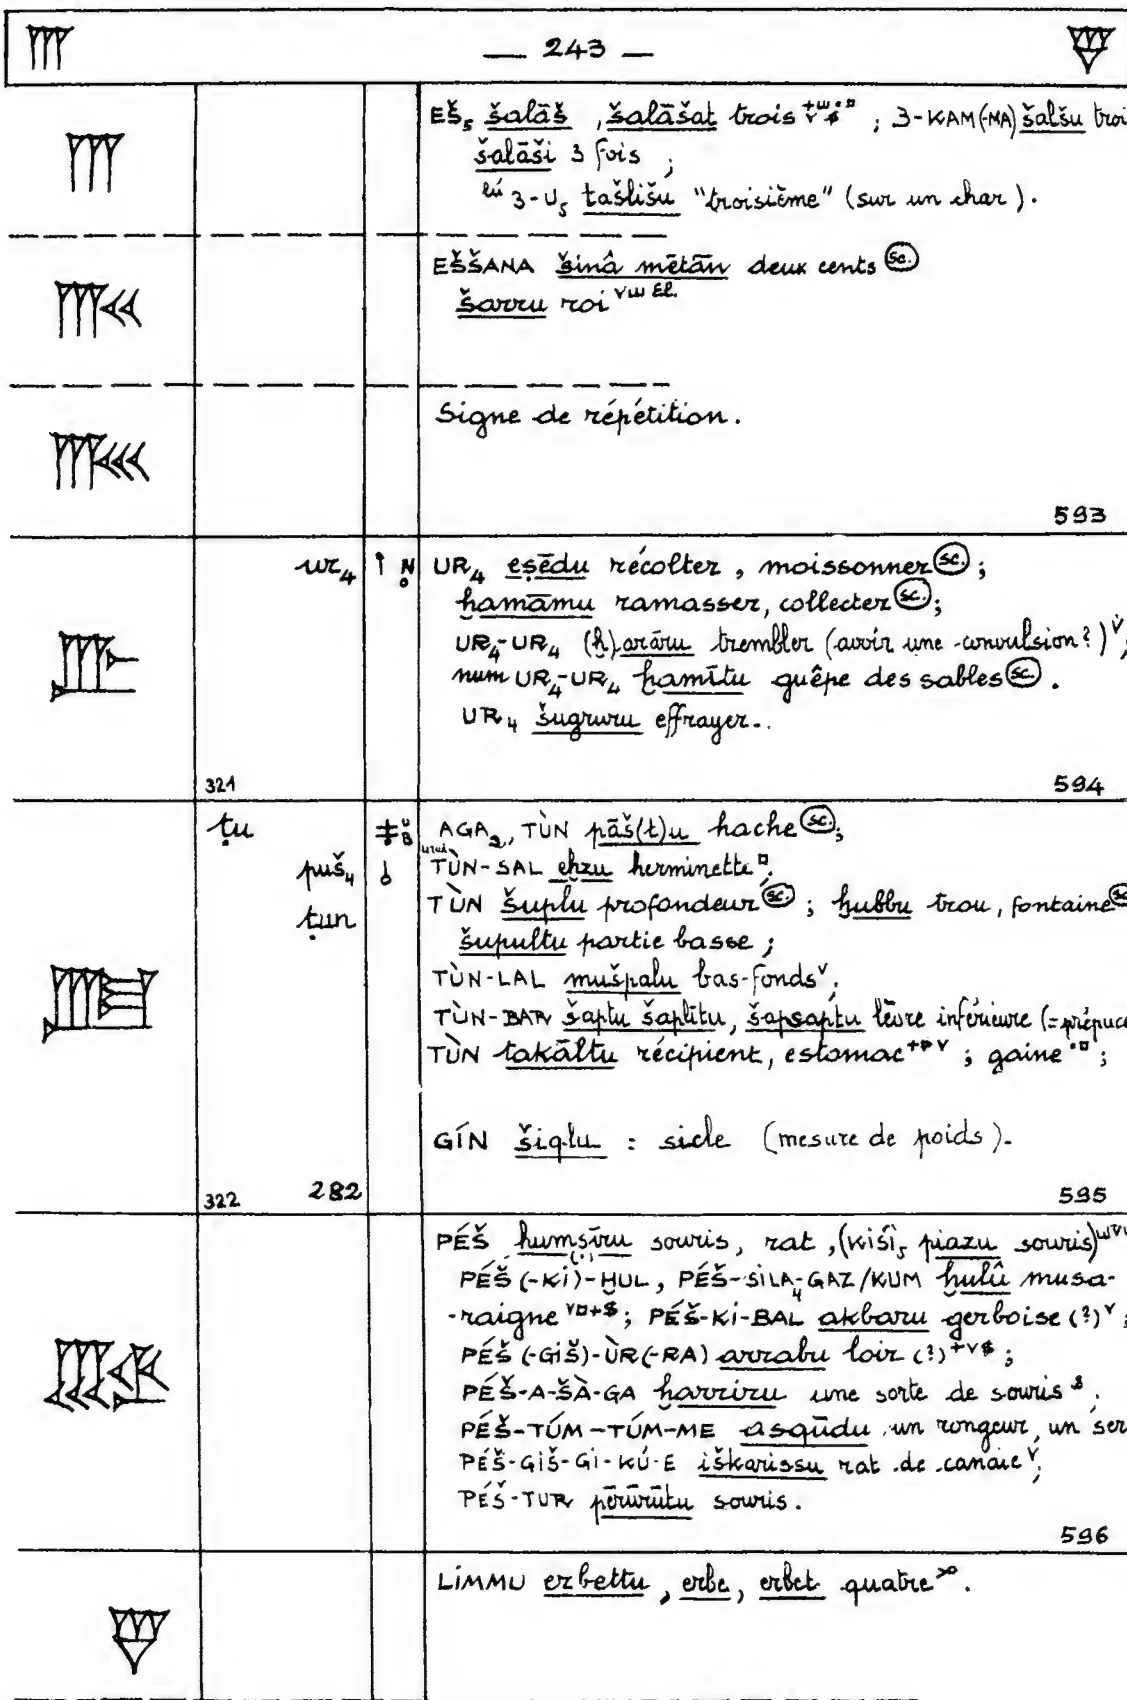 — 243 —
EŠ₅ šalāš , šalāšat trois ; 3-KAM(-MA) šalšu troi
šalāši 3 fois ;
lú 3-U₅ tašlišu "troisième" (sur un char).
EŠŠANA šinâ mētān deux cents sc.
šarru roi
Signe de répétition.
593
ur₄ UR₄ eṣēdu récolter , moissonner sc. ;
ḫamāmu ramasser, collecter sc. ;
UR₄-UR₄ (ḫ)arāru trembler (avoir une convulsion?) ;
num UR₄-UR₄ ḫamītu guêpe des sables sc. .
UR₄ šugruru effrayer..
321 594
ṭu AGA₂, TÙN pāš(t)u hache sc. ;
puš₄ urudu TÙN-SAL eḫzu herminette ;
ṭun TÙN šuplu profondeur sc. ; ḫubbu trou, fontaine sc.
šupultu partie basse ;
TÙN-LAL mušpalu bas-fonds ;
TÙN-BAR šaptu šaplītu, šapsaptu lèvre inférieure (=prépuce
TÙN takāltu récipient, estomac ; gaine ;
GÍN šiqlu : sicle (mesure de poids).
322 282 595
PÉŠ ḫumṣīru souris, rat ,(KIŠI₅ piazu souris)
PÉŠ(-KI)-ḪUL , PÉŠ-SILA₄-GAZ/KUM ḫulû musa-
-raigne ; PÉŠ-KI-BAL akbaru gerboise (?) ;
PÉŠ(-GIŠ)-ÙR(-RA) arrabu loir (?) ;
PÉŠ-A-ŠÀ-GA ḫarriru une sorte de souris .
PÉŠ-TÚM-TÚM-ME asqūdu un rongeur, un ser
PÉŠ-GIŠ-GI-KÚ-E iškarissu rat de canaie ;
PÉŠ-TUR pērūrūtu souris.
596
LIMMU erbettu , erbe, erbet quatre .